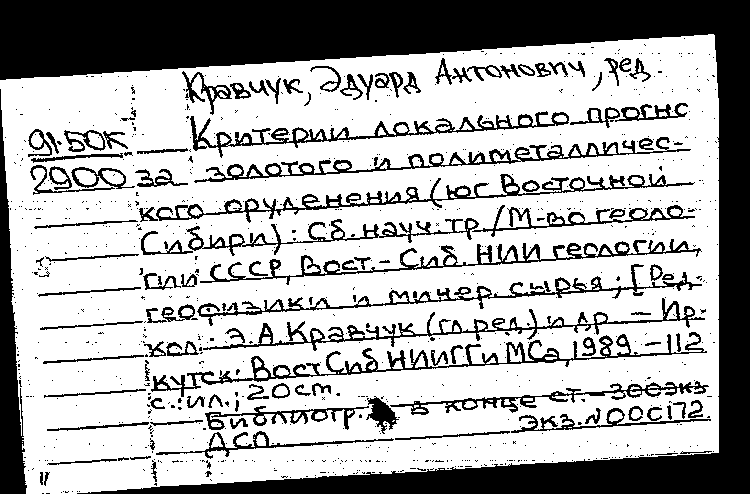 Кравчук, Эдуард Антонович, ред.
91-50К Критерии локального прогно
2900 за золотого и полиметалличес-
кого оруденения (юг Восточной
Сибири): Сб. науч. тр./М-во геоло-
гии СССР, Вост.-Сиб. НИИ геологии,
геофизики и минер. сырья; [Ред-
кол.: Э.А.Кравчук (гл.ред.) и др. – Ир-
кутск: ВостСибНИИГГиМСа, 1989. – 112
с.: ил.; 20 см.
Библиогр. в конце ст. – 300экз
ДСП. Экз. N 00С172
11